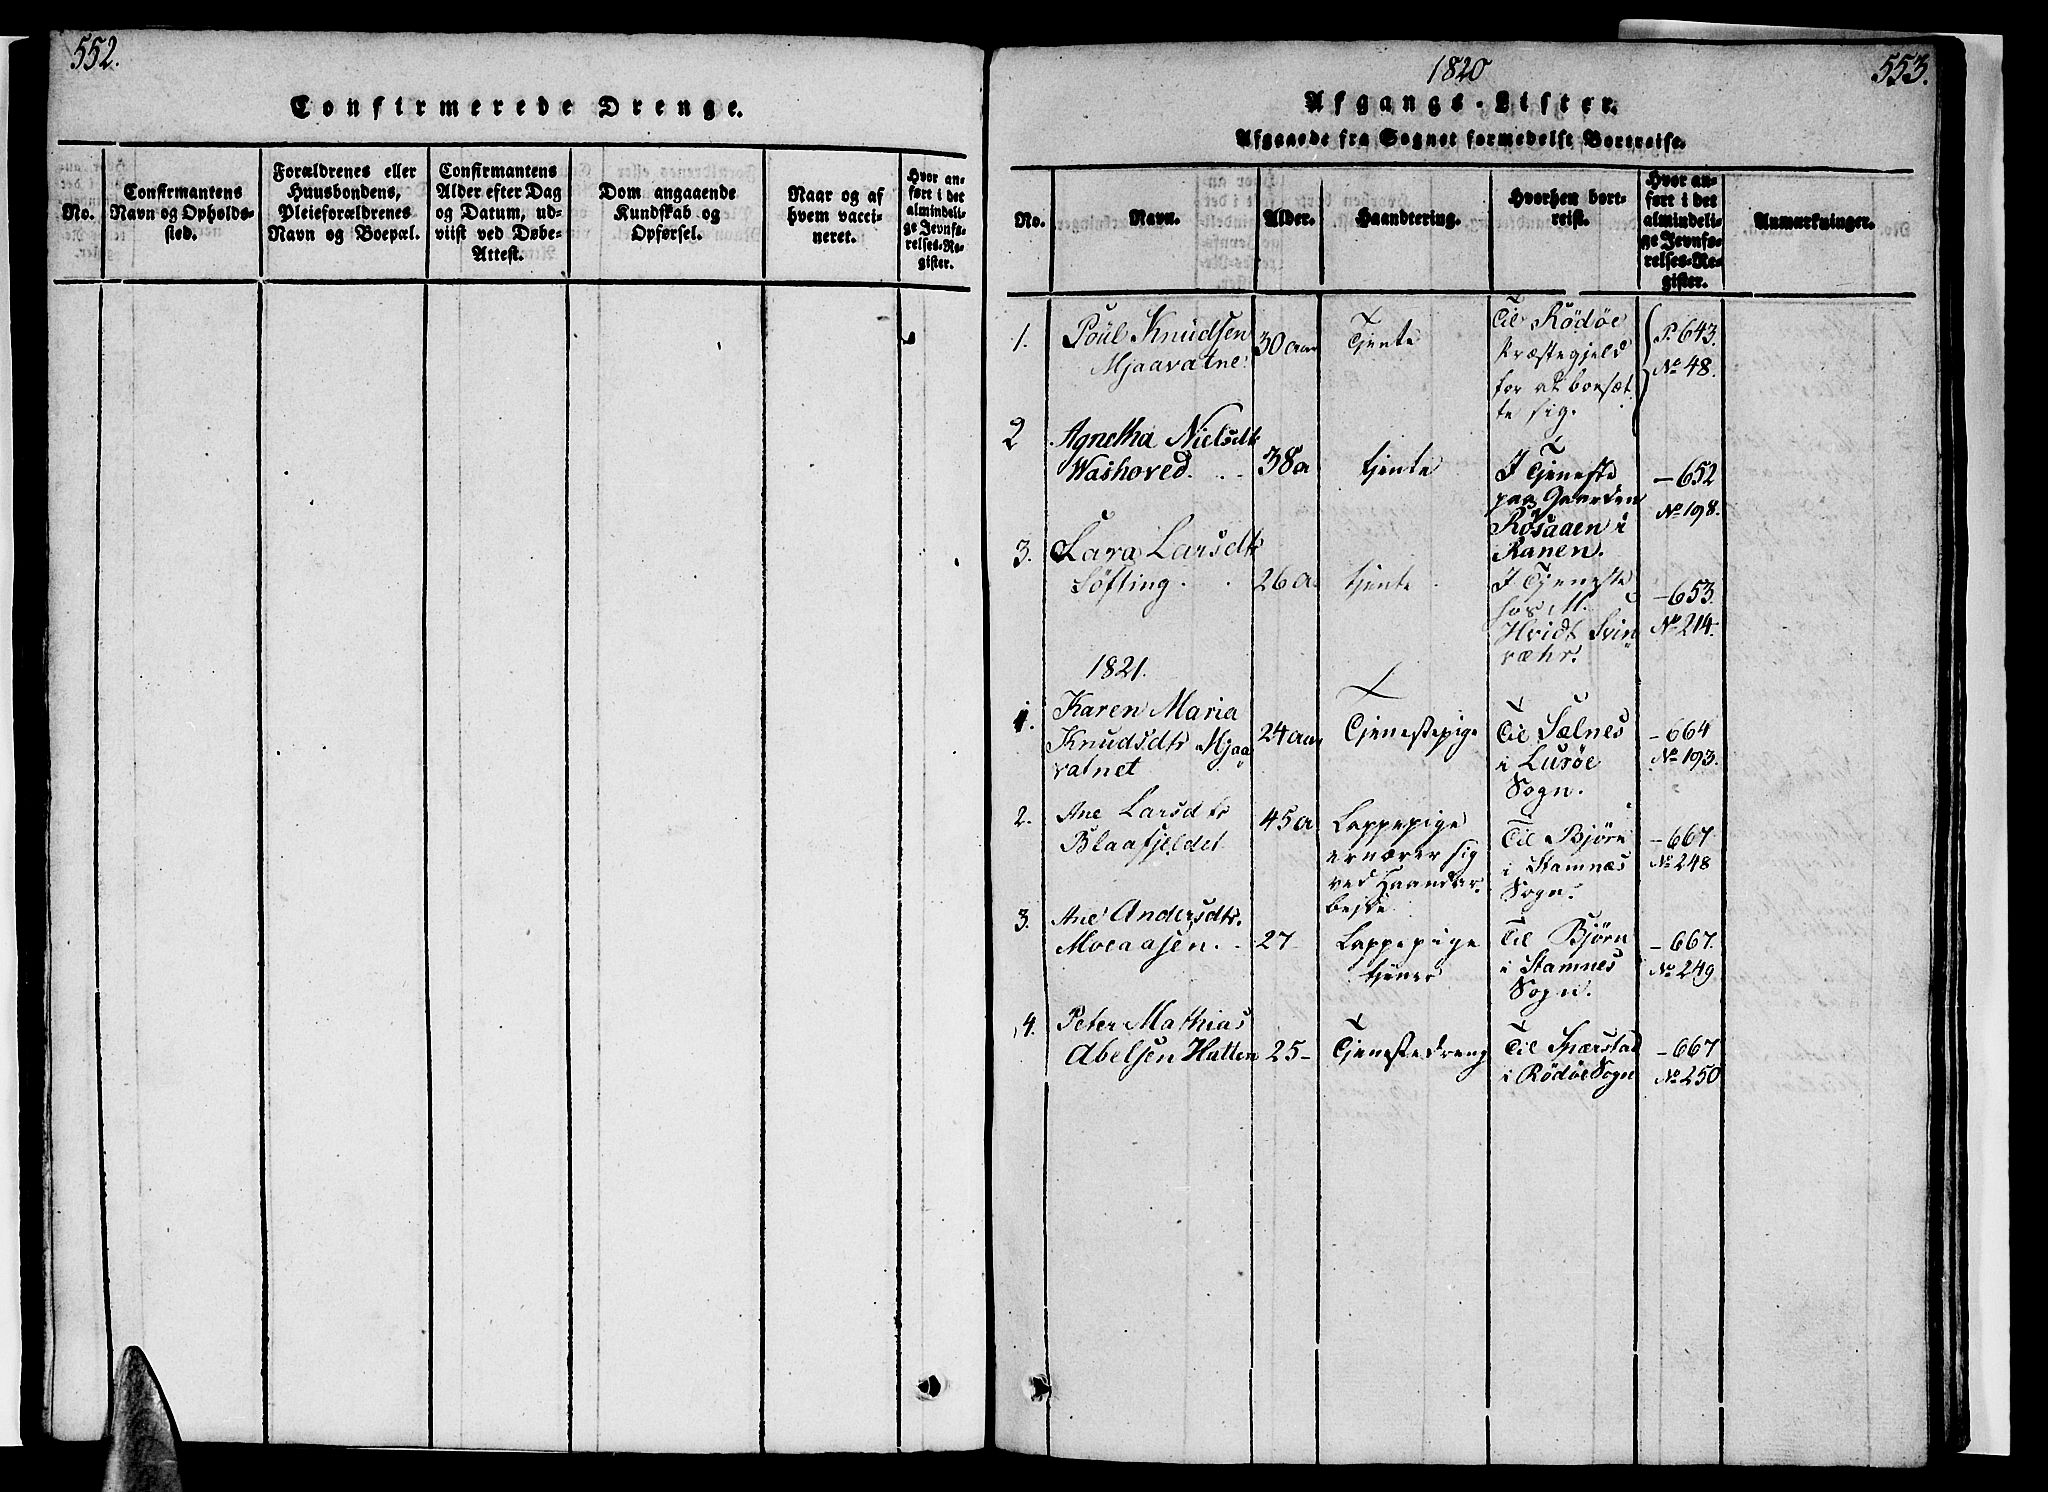 552.
Confirmerede Drenge.
No.
Confirmantens
Navn og Opholds-
sted.
Forældrenes eller
Huusbondens,
Pleieforældrenes
Navn og Boepæl.
Confirmantens
Alder efter Dag
og Datum, ud-
viist ved Døbe-
Attest.
Dom angaaende
Kundskab og
Opførsel.
Naar og af
hvem vacci-
neret.
Hvor an-
ført i det
almindeli-
ge Jevnfø-
relses-Re-
gister.
1820
553.
Afgangs-Lister.
Afgaaede fra Sognet formedelst Bortreise.
No.
Navn.
Alder.
Haandtering.
Hvorhen bort-
reist.
Hvor an-
ført i det
almindeli-
ge Jevnfø-
relses-Re-
gister.
Anmærkninger.
1.
Poül Knudsen
Mjaavatne
30 aar
Tjente
Til Rödöe
Præstegjeld
for at bosæt
te sig.
P. 643.
No 48.
2
Agnetha Nielsdtr
Washoved. . .
38 a
tjente
I Tjeneste
paa Gaarden
Røsaaen i
Ranen.
- 652
No 198.
3.
Lava Larsdtr
Søfting . .
26 a.
tjente
I Tjeneste
hos M.
Hvidt Svin
væhr.
- 653.
No 214.
1821.
1.
Karen Maria
Knudsdtr Mjaa
vatnet
24 aar
Tjenestepige
Til Sælnes
i Lurøe
Sogn.
- 664
No 193.
2.
Ane Larsdtr
Blaafjeldet
45 a
Lappepige
ernærer sig
ved Haandar
bejde
Til Bjørn
i Stamnæs
Sogn.
- 667.
No 248
3.
Ane Andersdtr.
Moeaasen. .
27
Lappepige
tjener
Til Bjørn
i Stamnes
Sogn.
- 667.
No 249
4.
Peter Mathias
Abelsen Hutten
25 -
Tjenestedreng
Til Spærstad
i Rödöe Sogn
- 667
No 250